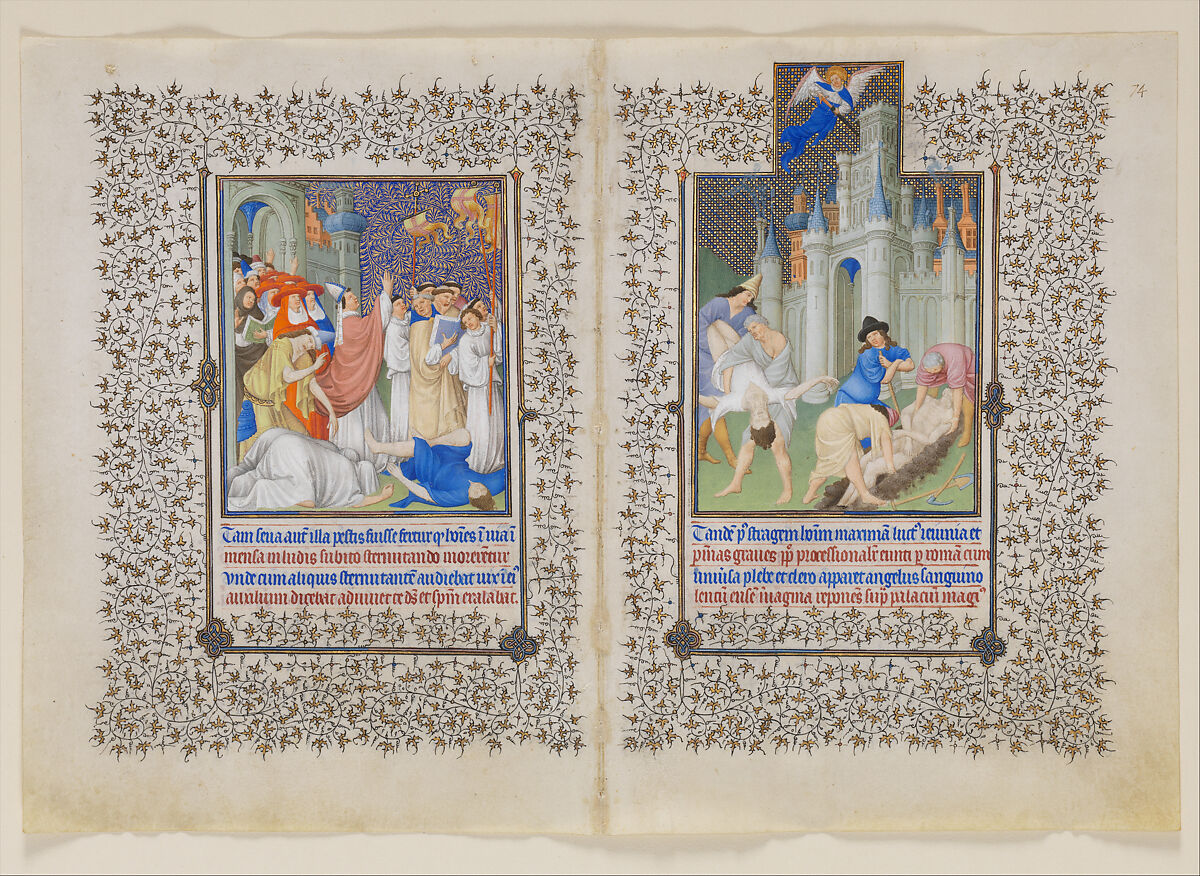 Tam seva aut̄ illa pestis fuisse fertur q̄ hoīes ī via ī
mensa in ludis subito sternutando morerētur
Vnde cum aliquis sternutantē audiebat
auxilium dicebat adiuuet te ds̄ et sp̄m exalabat.
74
Tandē p̄ stragem hoīm maximā ieiunia et
graues processionalr̄ eunti p romā cum
vniuersa plebe et clero apparet angelus sanguino
lentū ensē ī vagina reponēs sup̄ palaciū